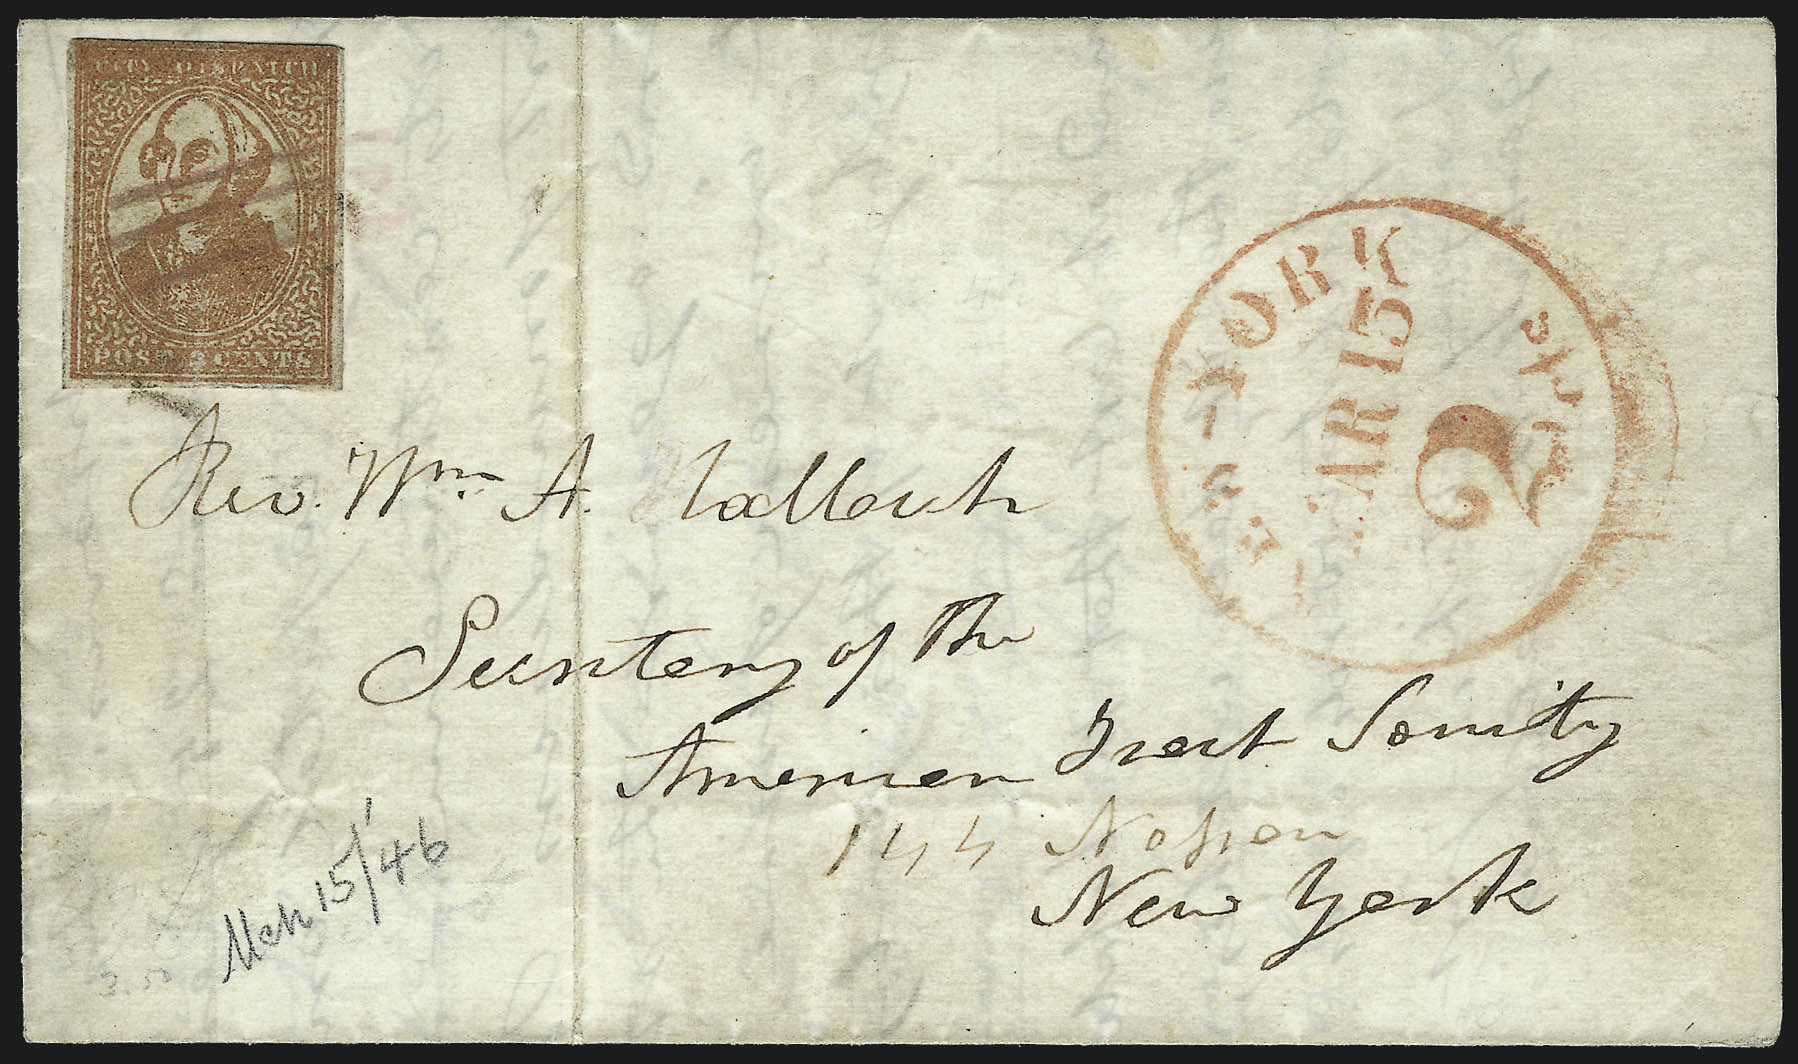 CITY DISPATCH
POST 2 CENTS
NEW-YORK
MAR 15
2 cts
Rev. Wm. A. Hallock
Secretary of the
American Tract Society
144 Nassau
New York
Mch 15/46
3.50